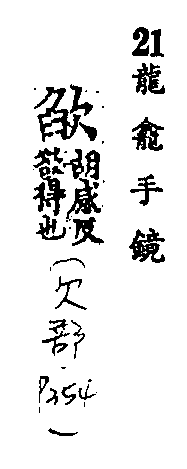 21龍龕手鏡
欿胡感反欲得也(欠部P354)